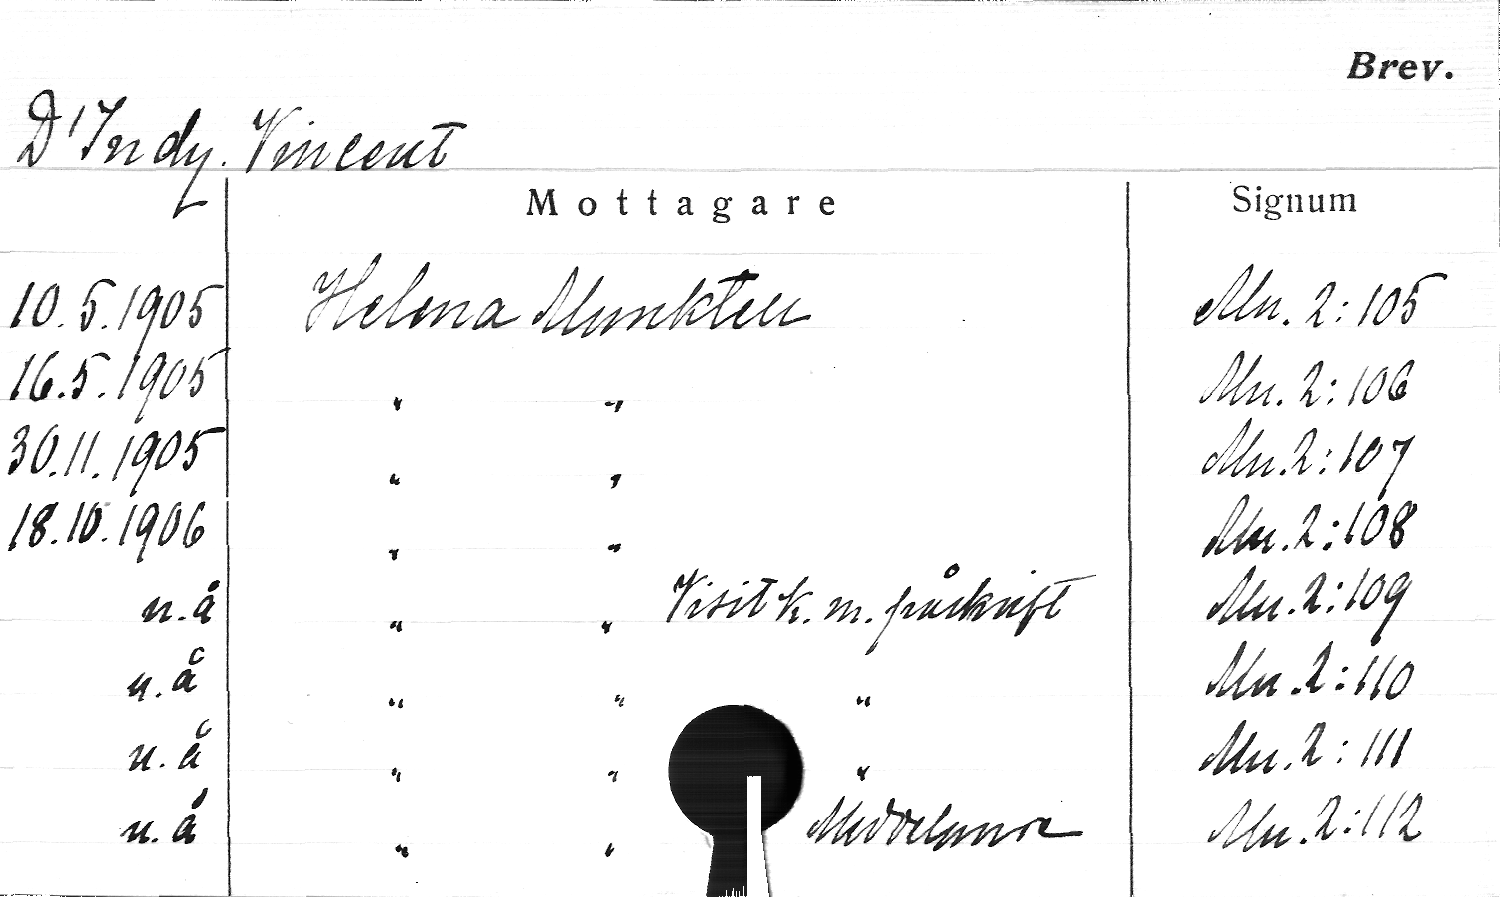 Brev.
D'Indy. Vincent
Mottagare Signum
10.5.1905 Helena Munktell Mu. 2:105
16.5.1905 " " Mu. 2:106
30.11.1905 " " Mu. 2:107
18.10.1906 " " Mu. 2:108
u.å " " Visitk. m. påskrift Mu. 2:109
u.å " " " Mu. 2:110
u.å " " " Mu. 2:111
u.å " " Meddelande Mu. 2:112